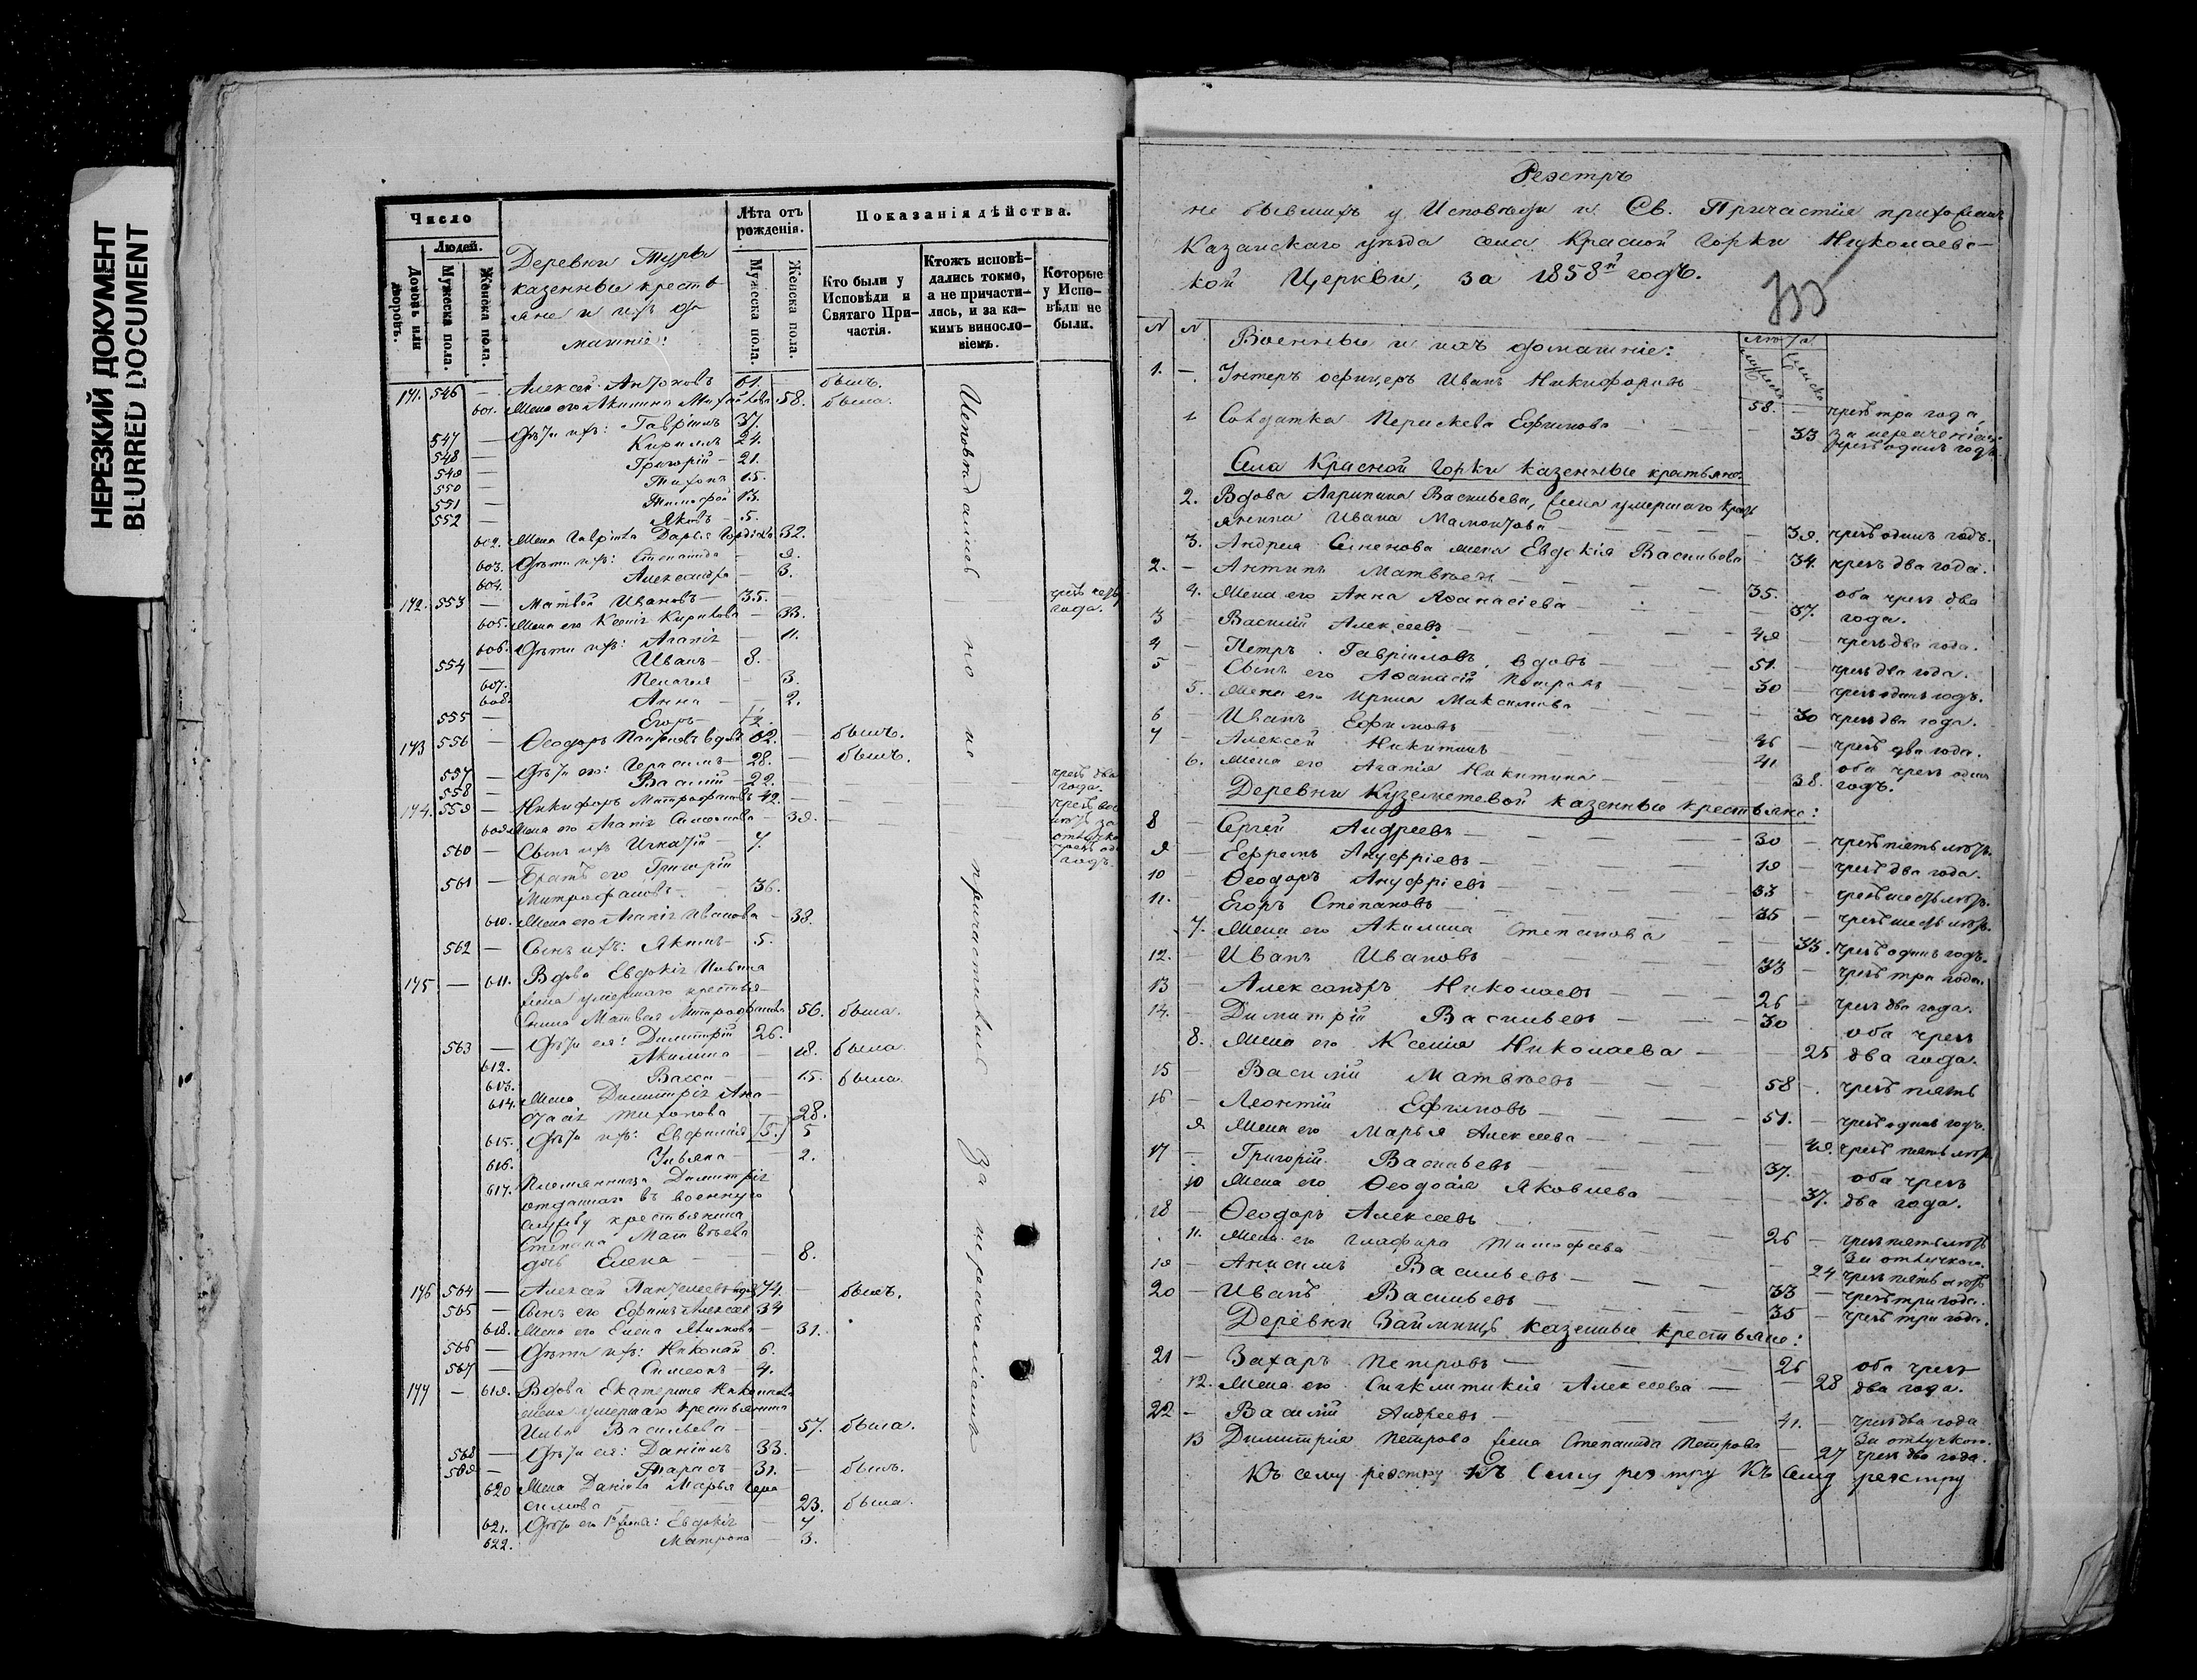 НЕРЕЗКИЙ ДОКУМЕНТ
BLURRED DOCUMENT
Число
Людей.
Домовъ или дворовъ.
Мужеска пола.
Женска пола.
Деревни Туры
казенные кресть
яне и ихъ до
машніе:
Лѣта отъ рожденія.
Мужеска пола.
Женска пола.
Показанія дѣйства.
Кто были у Исповѣди и Святаго Причастія.
Ктожъ исповѣдались токмо, а не причастились, и за какимъ винословіемъ.
Которые у Исповѣди не были.
Исповѣдались но не причастились за нерачеміемъ
171. 546 — Алексей Антоновъ 61. — былъ.
601. Жена его Акилина Михайлова 58. была.
547 — Дѣти ихъ: Гавріилъ 37.
548 — Кирилъ 24.
549 — Григорій — 21.
550 — Тихонъ 15.
551 — Тимофей 13.
552 — Яковъ — 5.
602. Жена Гавріила Дарья 32.
603. Дѣти ихъ: Степанида — 9.
604. Александра — 3.
172. 553 — Матвей Ивановъ — 35. чрезъ года.
605. Жена его Ксенія Кирилова — 33.
606. Дѣти ихъ: Агапія — 11.
554 — Иванъ — 8.
607. Пелагея — 3.
608. Анна — 2.
555 — Егоръ —
173 556 — Ѳеодоръ вдовъ 62. — былъ.
557 — Дѣти его: Герасимъ — 28. — былъ.
558 — Василій — 22. чрезъ два года.
174. 559 — Никифоръ Митрофановъ 42.
609. Жена его Агапія Симеонова — 39.
560 — Сынъ ихъ Игнатій — 7.
561 — Братъ его Григорій
Митрофановъ — 36.
610. Жена его Агапія Иванова — 38.
562 — Сынъ ихъ: Якимъ — 5.
175 — 611. Вдова Евдокія Ильина
жена умершаго кресть-
янина Матвея Митрофанова 56. была.
563 — Дѣти ея: Димитрій 26.
612. Акилина — 18. была.
613. Васса — 15. была.
614. Жена Димитрія Ана-
стасія Тихонова 28.
615. Дѣти ихъ: Евфимія (5.) 5
616. Ульяна — 2.
617. Племянница Димитрія
отданнаго въ военную
службу крестьянина
Степана Матвѣева
дочь Елена — 8.
176 564 — Алексей вдовъ 74. — былъ.
565 — Сынъ его Ефимъ Алексеевъ 34
618. Жена его Елена Якимова — 31.
566 — Дѣти ихъ: Николай 6.
567 — Симеонъ — 4.
177 — 619. Вдова Екатерина
жена умершаго крестьянина
Ильи Васильева — 57. была.
568 — Дѣти ея: Даніилъ 33.
569 — Тарасъ — 31. — былъ.
620 Жена Даніила Марья Гера-
симова — 23. была.
621. Дѣти его 1й жены: Евдокія — 7
622. Матрона — 3.
Реэстръ
не бывшихъ у Исповѣди и Св. Причастія прихожанъ
Казанскаго уѣзда села Красной Горки Николаевс-
кой Церкви, за 1858й годъ.
N N Военные и ихъ домашніе:
1. — Унтеръ офицеръ Иванъ Никифоровъ 58. — чрезъ три года
1 Солдатка Перасковья Ефимова — 33 за нераченіемъ чрезъ одинъ годъ.
Села Красной Горки казенные крестьяне:
2. Вдова Агрипина Васильева, жена умершаго крест
янина Ивана Мамонтова — 39. чрезъ одинъ годъ.
3. Андрея Семенова жена Евдокія Васильева — 34. чрезъ два года.
2. — Антипъ Матвѣевъ — 35. оба чрезъ два
4. Жена его Анна Аѳанасіева — 37. года.
3 — Василій Алексеевъ — 49 — чрезъ два года.
4 — Петръ Гавріиловъ, вдовъ — 51. — чрезъ два года.
5 — Сынъ его Аѳанасій Петровъ — 30 — чрезъ одинъ годъ.
5. Жена его Ирина Максимова — 30 чрезъ два года.
6 — Иванъ Ефимовъ — 46 — чрезъ два года.
7 — Алексей Никитинъ — 41. оба чрезъ одинъ
6. Жена его Агапія Никитина — 38. годъ.
Деревни Куземетевой казенные крестьяне:
8 — Сергей Андреевъ — 30 — чрезъ пять лѣтъ.
9 — Ефремъ Ануфріевъ — 19 — чрезъ два года.
10 — Ѳеодоръ Ануфріевъ — 33 — чрезъ шесть лѣтъ.
11. — Егоръ Степановъ — 35 — чрезъ шесть лѣтъ.
7. Жена его Акилина Степанова — 33. чрезъ одинъ годъ.
12. — Иванъ Ивановъ — 33 — чрезъ три года.
13 — Александръ Николаевъ — 26 — чрезъ два года.
14. — Димитрій Васильевъ — 30 оба чрезъ
8. Жена его Ксенія Николаева — 25 два года.
15 — Василій Матвѣевъ — 58 — чрезъ пять
16 — Леонтій Ефимовъ — 51. — чрезъ одинъ годъ.
9 Жена его Марья Алексеева — 49. чрезъ пять лѣтъ
17 — Григорій Васильевъ — 37. оба чрезъ
10 Жена его Ѳеодосія Яковлева — 37. два года.
18 — Ѳеодоръ Алексеевъ — 26 — чрезъ пять лѣтъ
11. Жена его Глафира Тимофеева — 24 за отлучкою. чрезъ пять лѣтъ
19 — Анисимъ Васильевъ — 33 — чрезъ три года.
20 — Иванъ Васильевъ — 35 — чрезъ три года.
Деревни Займищъ казенные крестьяне:
21 — Захаръ Петровъ — 26 оба чрезъ
12. Жена его Сигклитикія Алексеева — 28 два года.
22 — Василій Андреевъ — 41. — чрезъ два года
13 Димитрія Петрова жена Степанида Петрова — 27 За отлучкою. чрезъ два года.
Къ сему реэстру Къ сему реэстру Къ сему реэстру